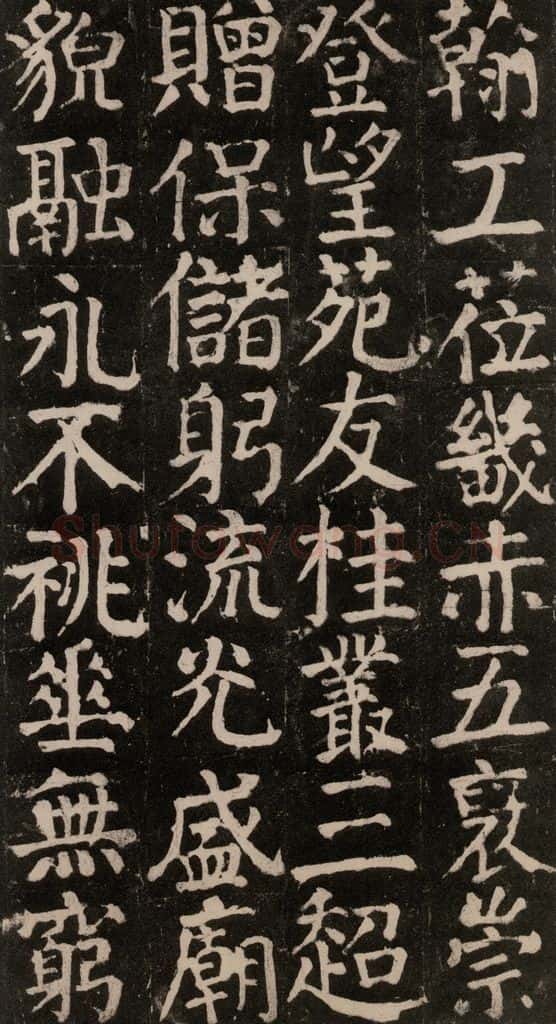 翰工莅畿赤五褒崇
登望苑友桂叢三超
贈保儲躬流光盛廟
貌融永不祧垂無窮
Shufawang.CN